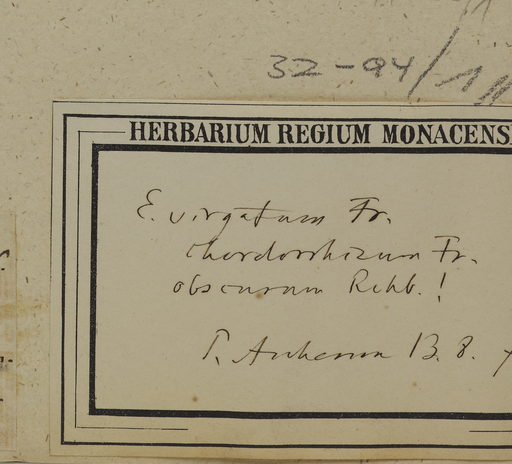 32-94/
HERBARIUM REGIUM MONACENS
E. virgatum Fr.
chordorrhizum Fr.
obscurum Rchb.!
B. 8.